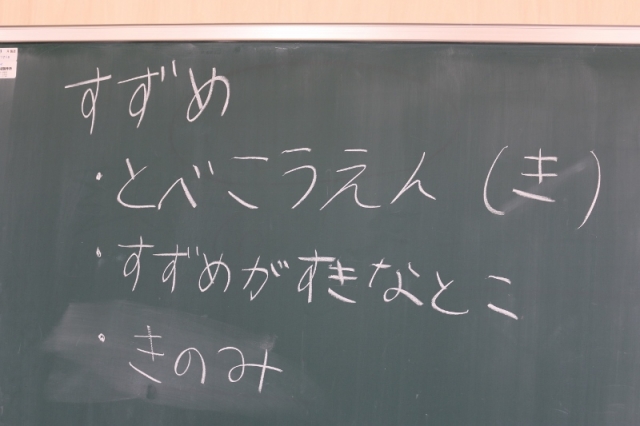 すずめ
・とべこうえん（き）
・すずめがすきなとこ
・きのみ